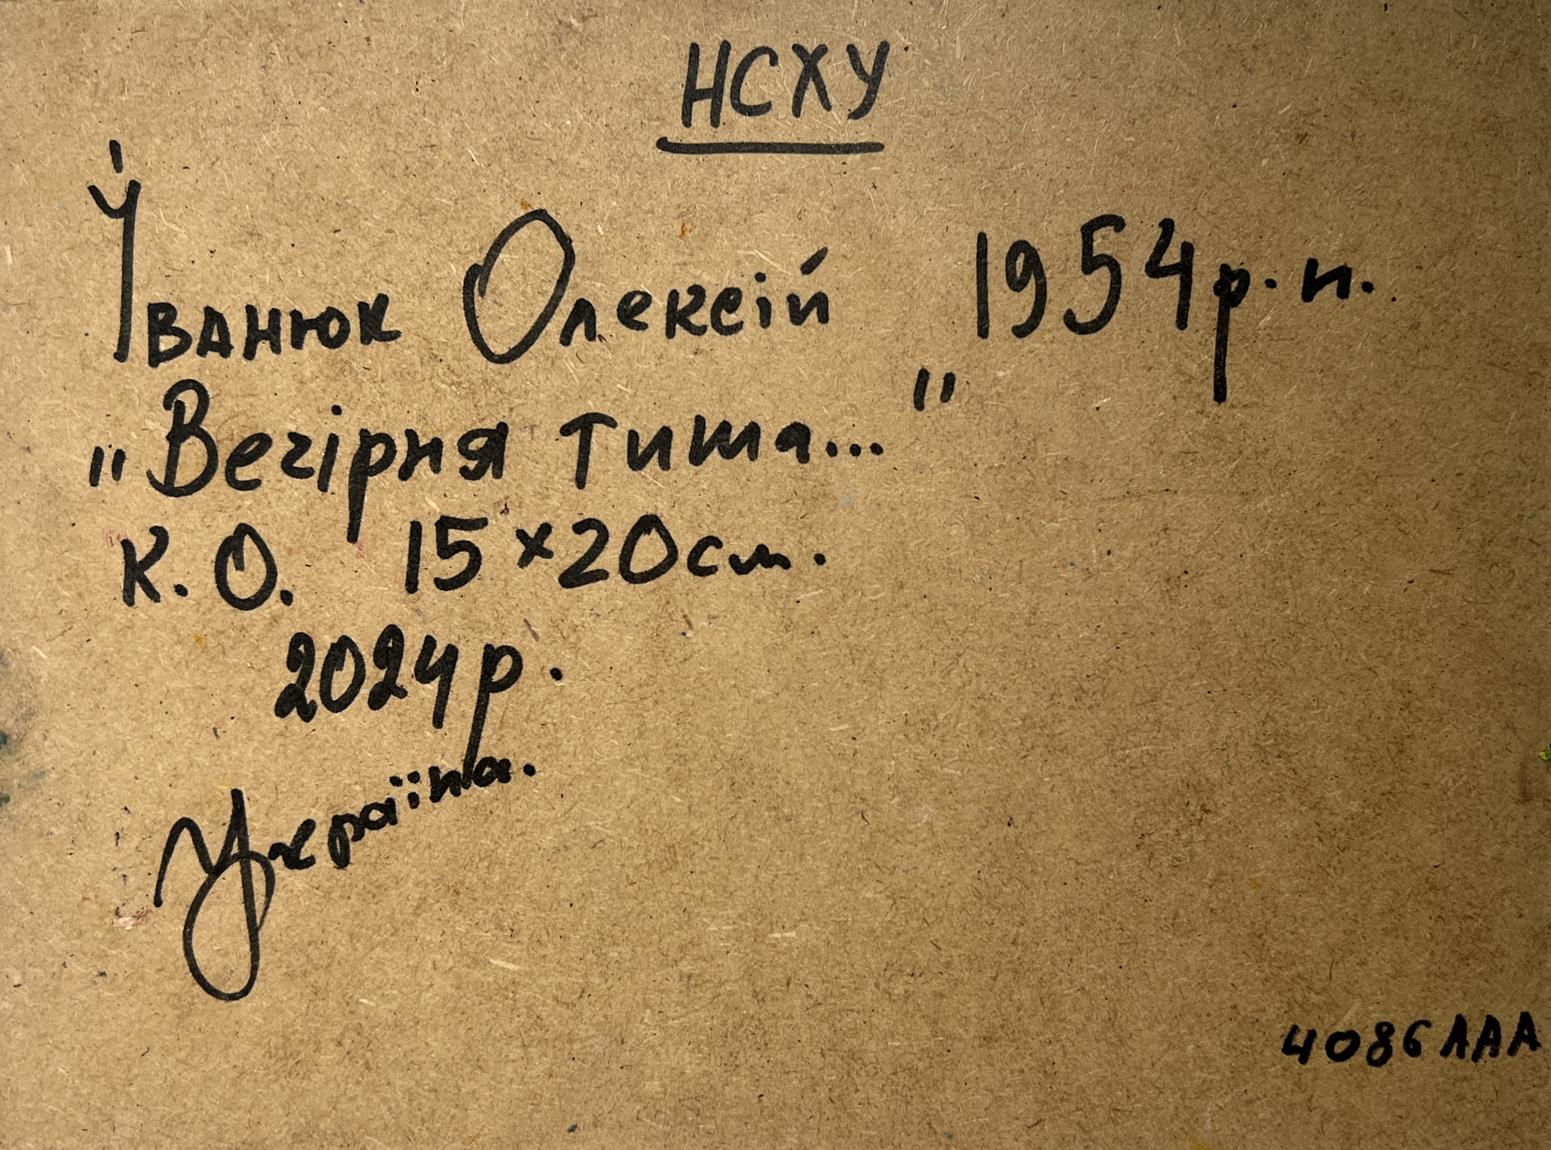 НСХУ
Іванюк Олексій 1954 р. н.
„Вечірня тиша..."
К. О. 15×20 см.
2024 р.
Україна.
4086 ААА